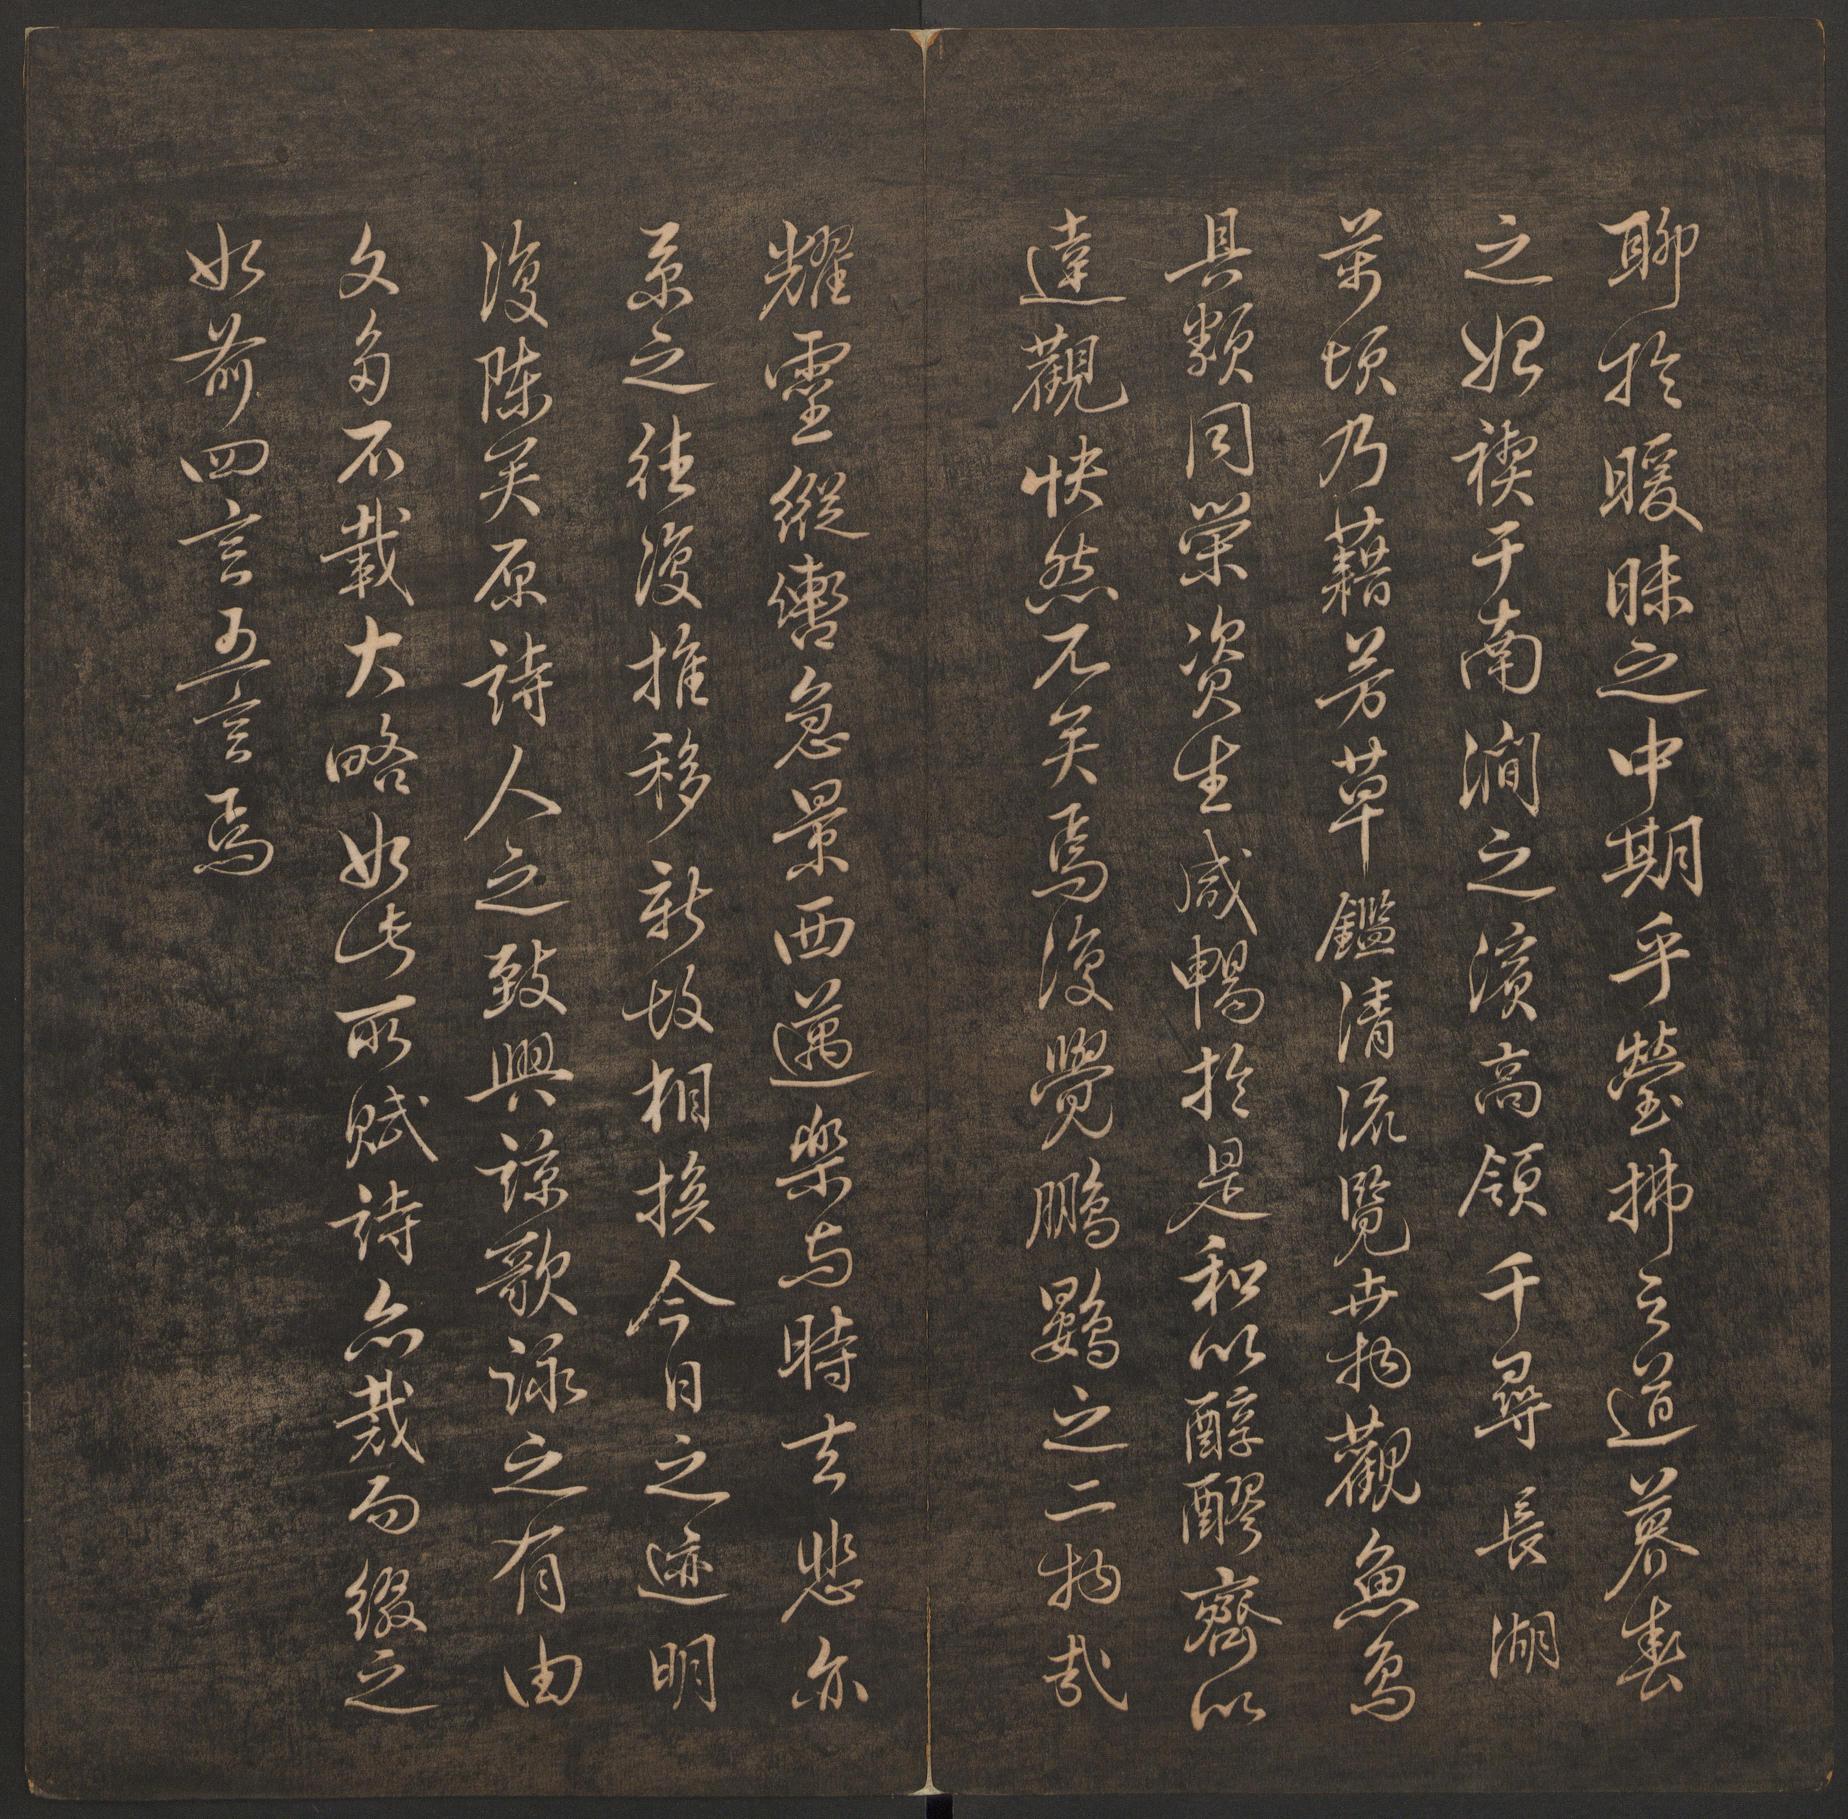 聊於暧昧之中期乎瑩拂之道暮春
之始禊于南澗之濱高領千尋長湖
萬頃乃藉芳草鑑清流覽卉物觀魚鳥
具類同榮資生咸暢於是和以醇醪齊以
達觀快然兀矣焉復覺鵬鷃之二物哉
耀靈縱轡急景西邁樂与時去悲亦
系之往復推移新故相換今日之迹明
復陳矣原詩人之致興諒歌詠之有由
文多不載大略如此所賦詩亦裁而綴之
如前四言五言焉